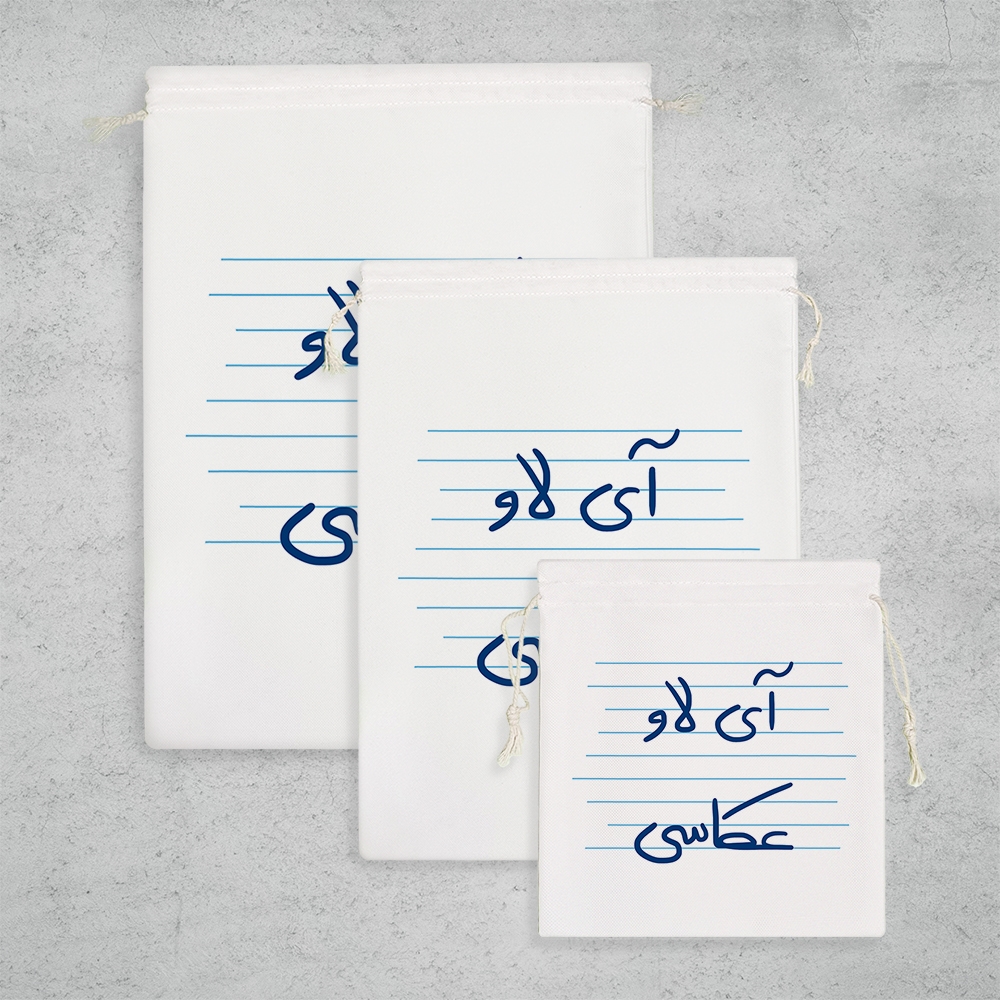 آی لاو
آی لاو
عکاسی